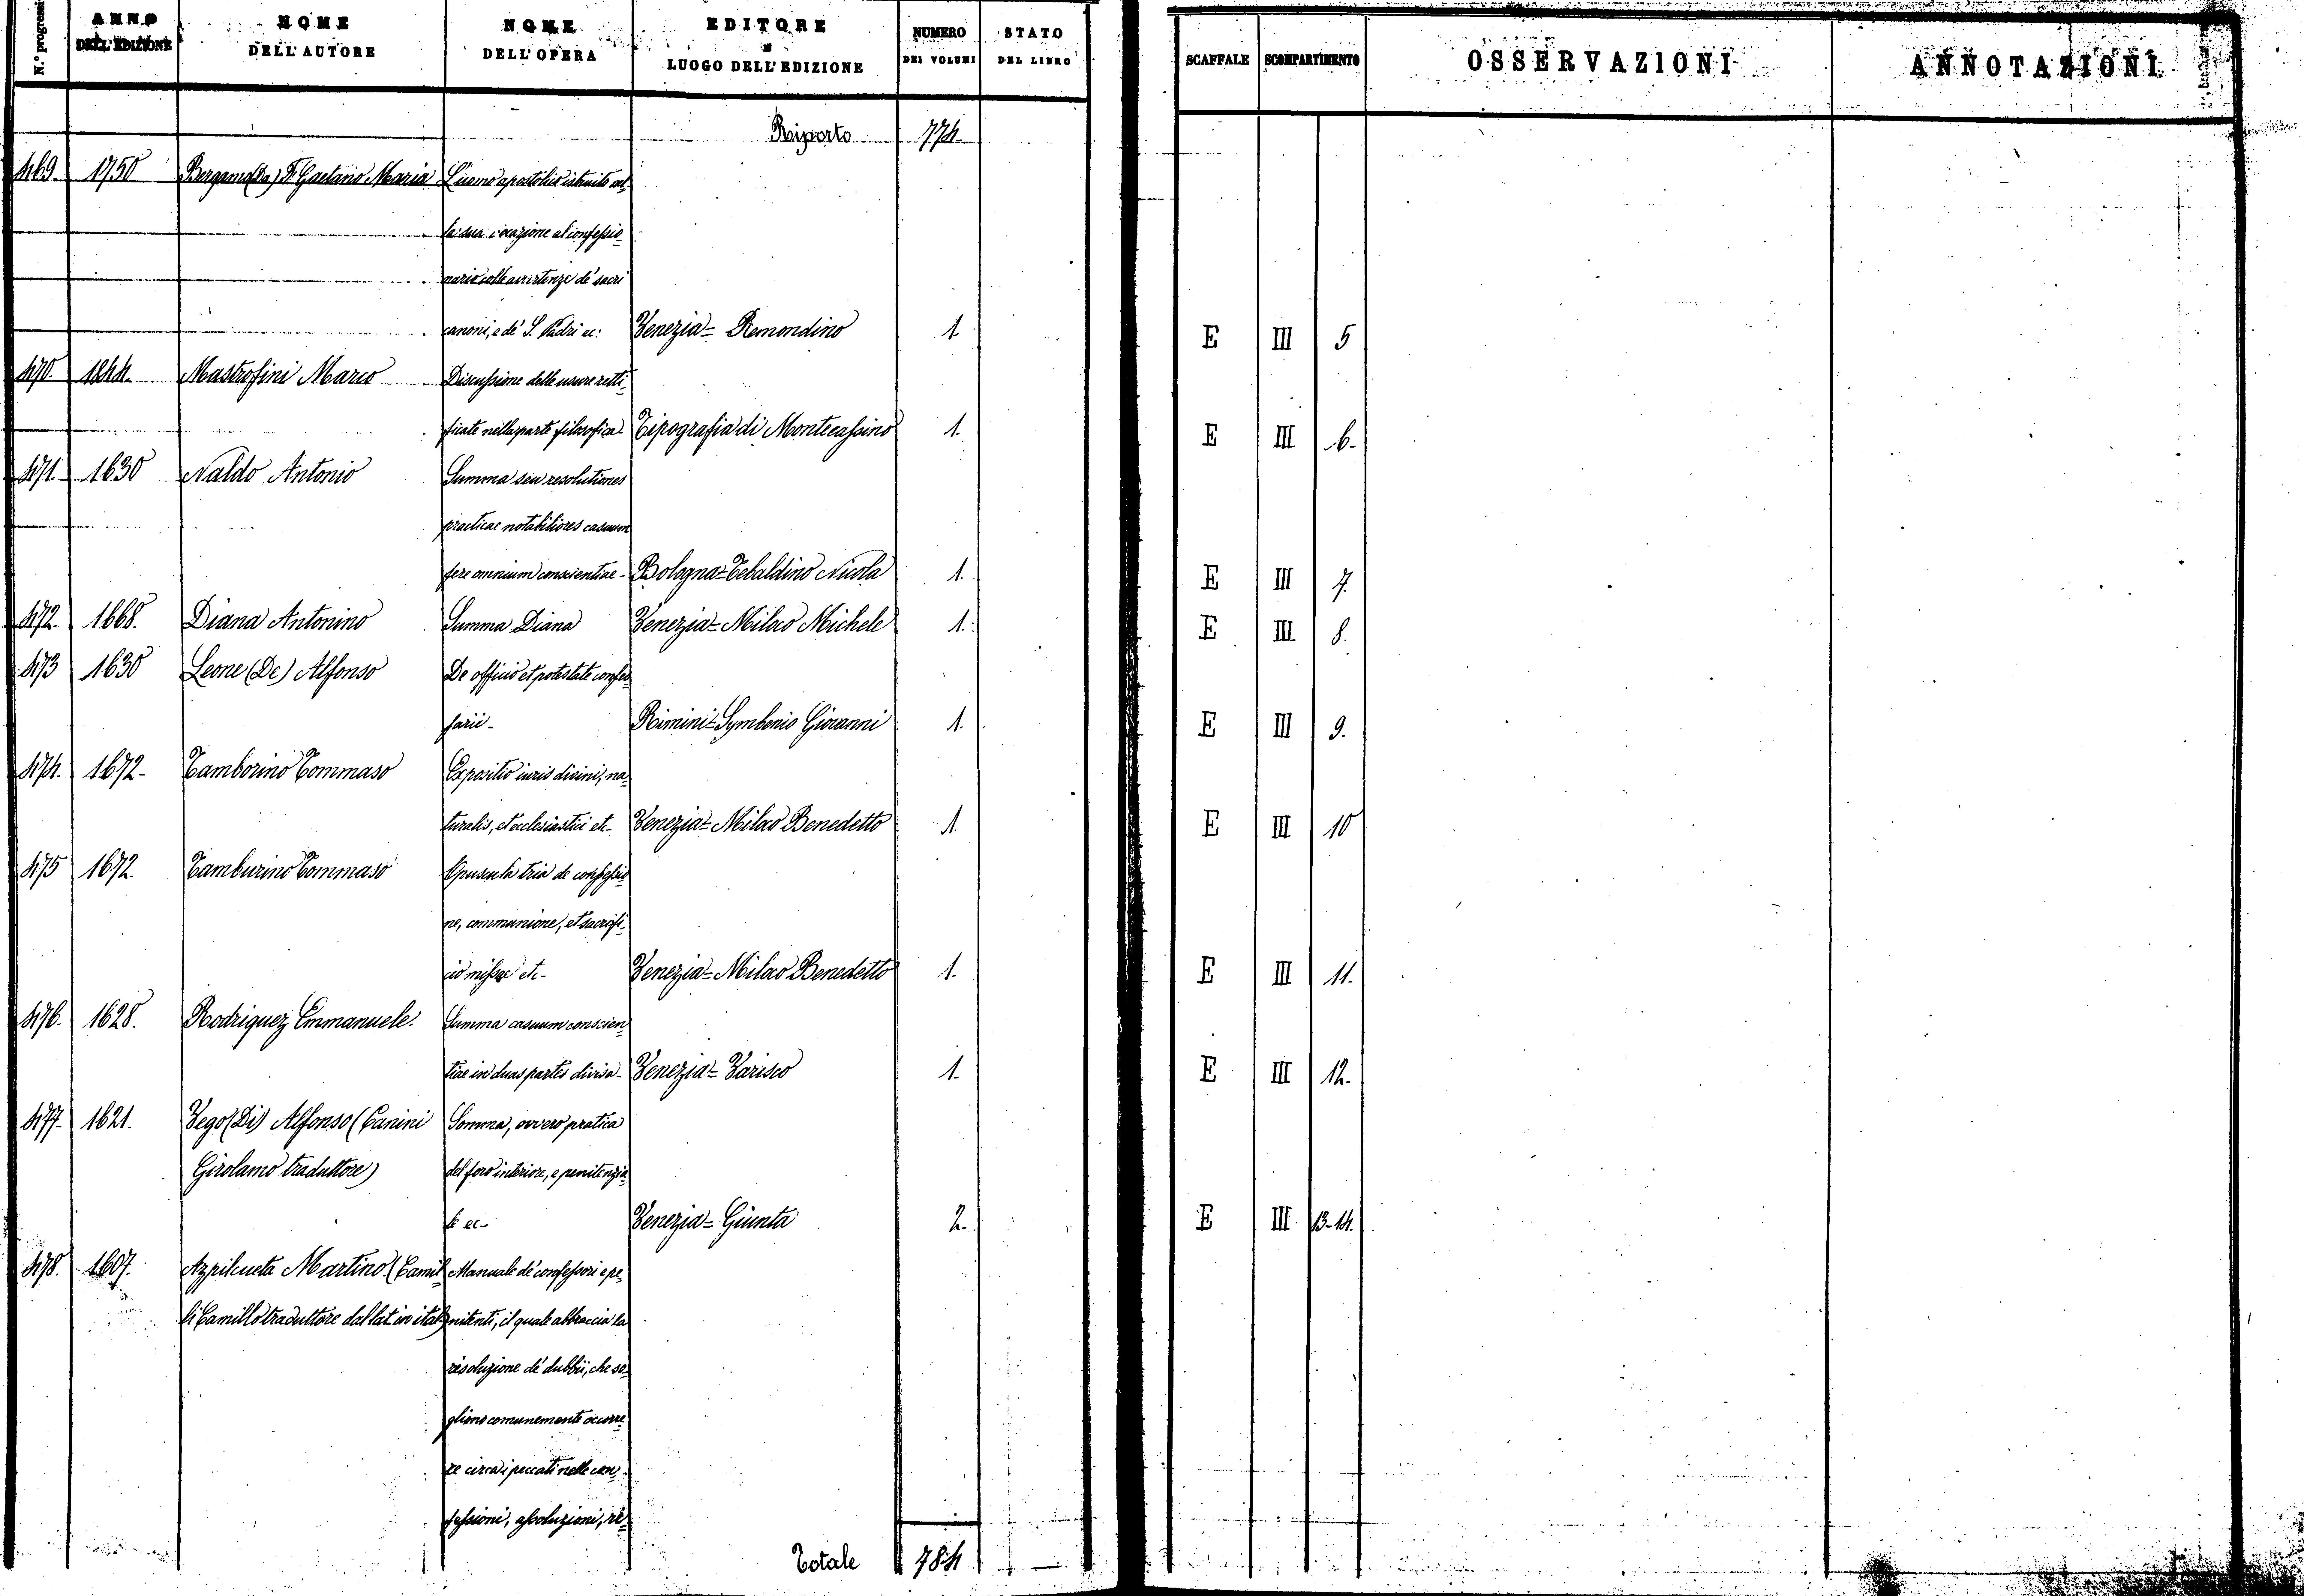 N.° progressi
ANNO DELL'EDIZIONE
NOME DELL'AUTORE
NOME DELL'OPERA
EDITORE e LUOGO DELL'EDIZIONE
NUMERO DEI VOLUMI
STATO DEL LIBRO
SCAFFALE
SCOMPARTIMENTO
OSSERVAZIONI
ANNOTAZIONI
Riporto 774
469. 1750 Bergamo (Da) F. Gaetano Maria L'uomo apostolico istruito nel
la sua vocazione al confessio
nario colle avvertenze de' sacri
canoni, e de' S. Padri ec: Venezia = Remondino 1 E III 5
470. 1844. Mastrofini Marco Discussione delle usure retti
ficate nella parte filosofica Tipografia di Montecassino 1. E III 6.
471 1630 Naldo Antonio Summa seu resolutiones
practicae notabiliores casuum
fere omnium conscientiae - Bologna = Tebaldino Nicola 1. E III 7.
472. 1668. Diana Antonino Summa Diana Venezia = Miloco Michele 1. E III 8.
473 1630 Leone (De) Alfonso De officio et potestate confes
sarii - Rimini = Symbenio Giovanni 1. E III 9.
474. 1672 - Tamborino Tommaso Expositio iuris divini, na
turalis, et ecclesiastici etc - Venezia = Miloco Benedetto 1. E III 10
475 1672. Tamburino Tommaso Opuscula tria de confessio
ne, communione, et sacrifi
cio missae etc - Venezia = Miloco Benedetto 1. E III 11.
476. 1628. Rodriguez Emmanuele. Summa casuum conscien
tiae in duas partes divisa - Venezia = Varisco 1. E III 12.
477. 1621. Vego (Di) Alfonso (Canini Somma, ovvero pratica
Girolamo traduttore) del foro interiore, e penitenzia
le ec - Venezia = Giunta 2. E III 13-14.
478. 1607. Azpilcueta Martino (Camil Manuale de' confessori e pe
li Camillo traduttore dal lat. in ital.) nitenti, il quale abbraccia la
risoluzione de' dubbii, che so
gliono comunemente occorre
re circa i peccati nelle con
fessioni, assoluzioni, re
Totale 784